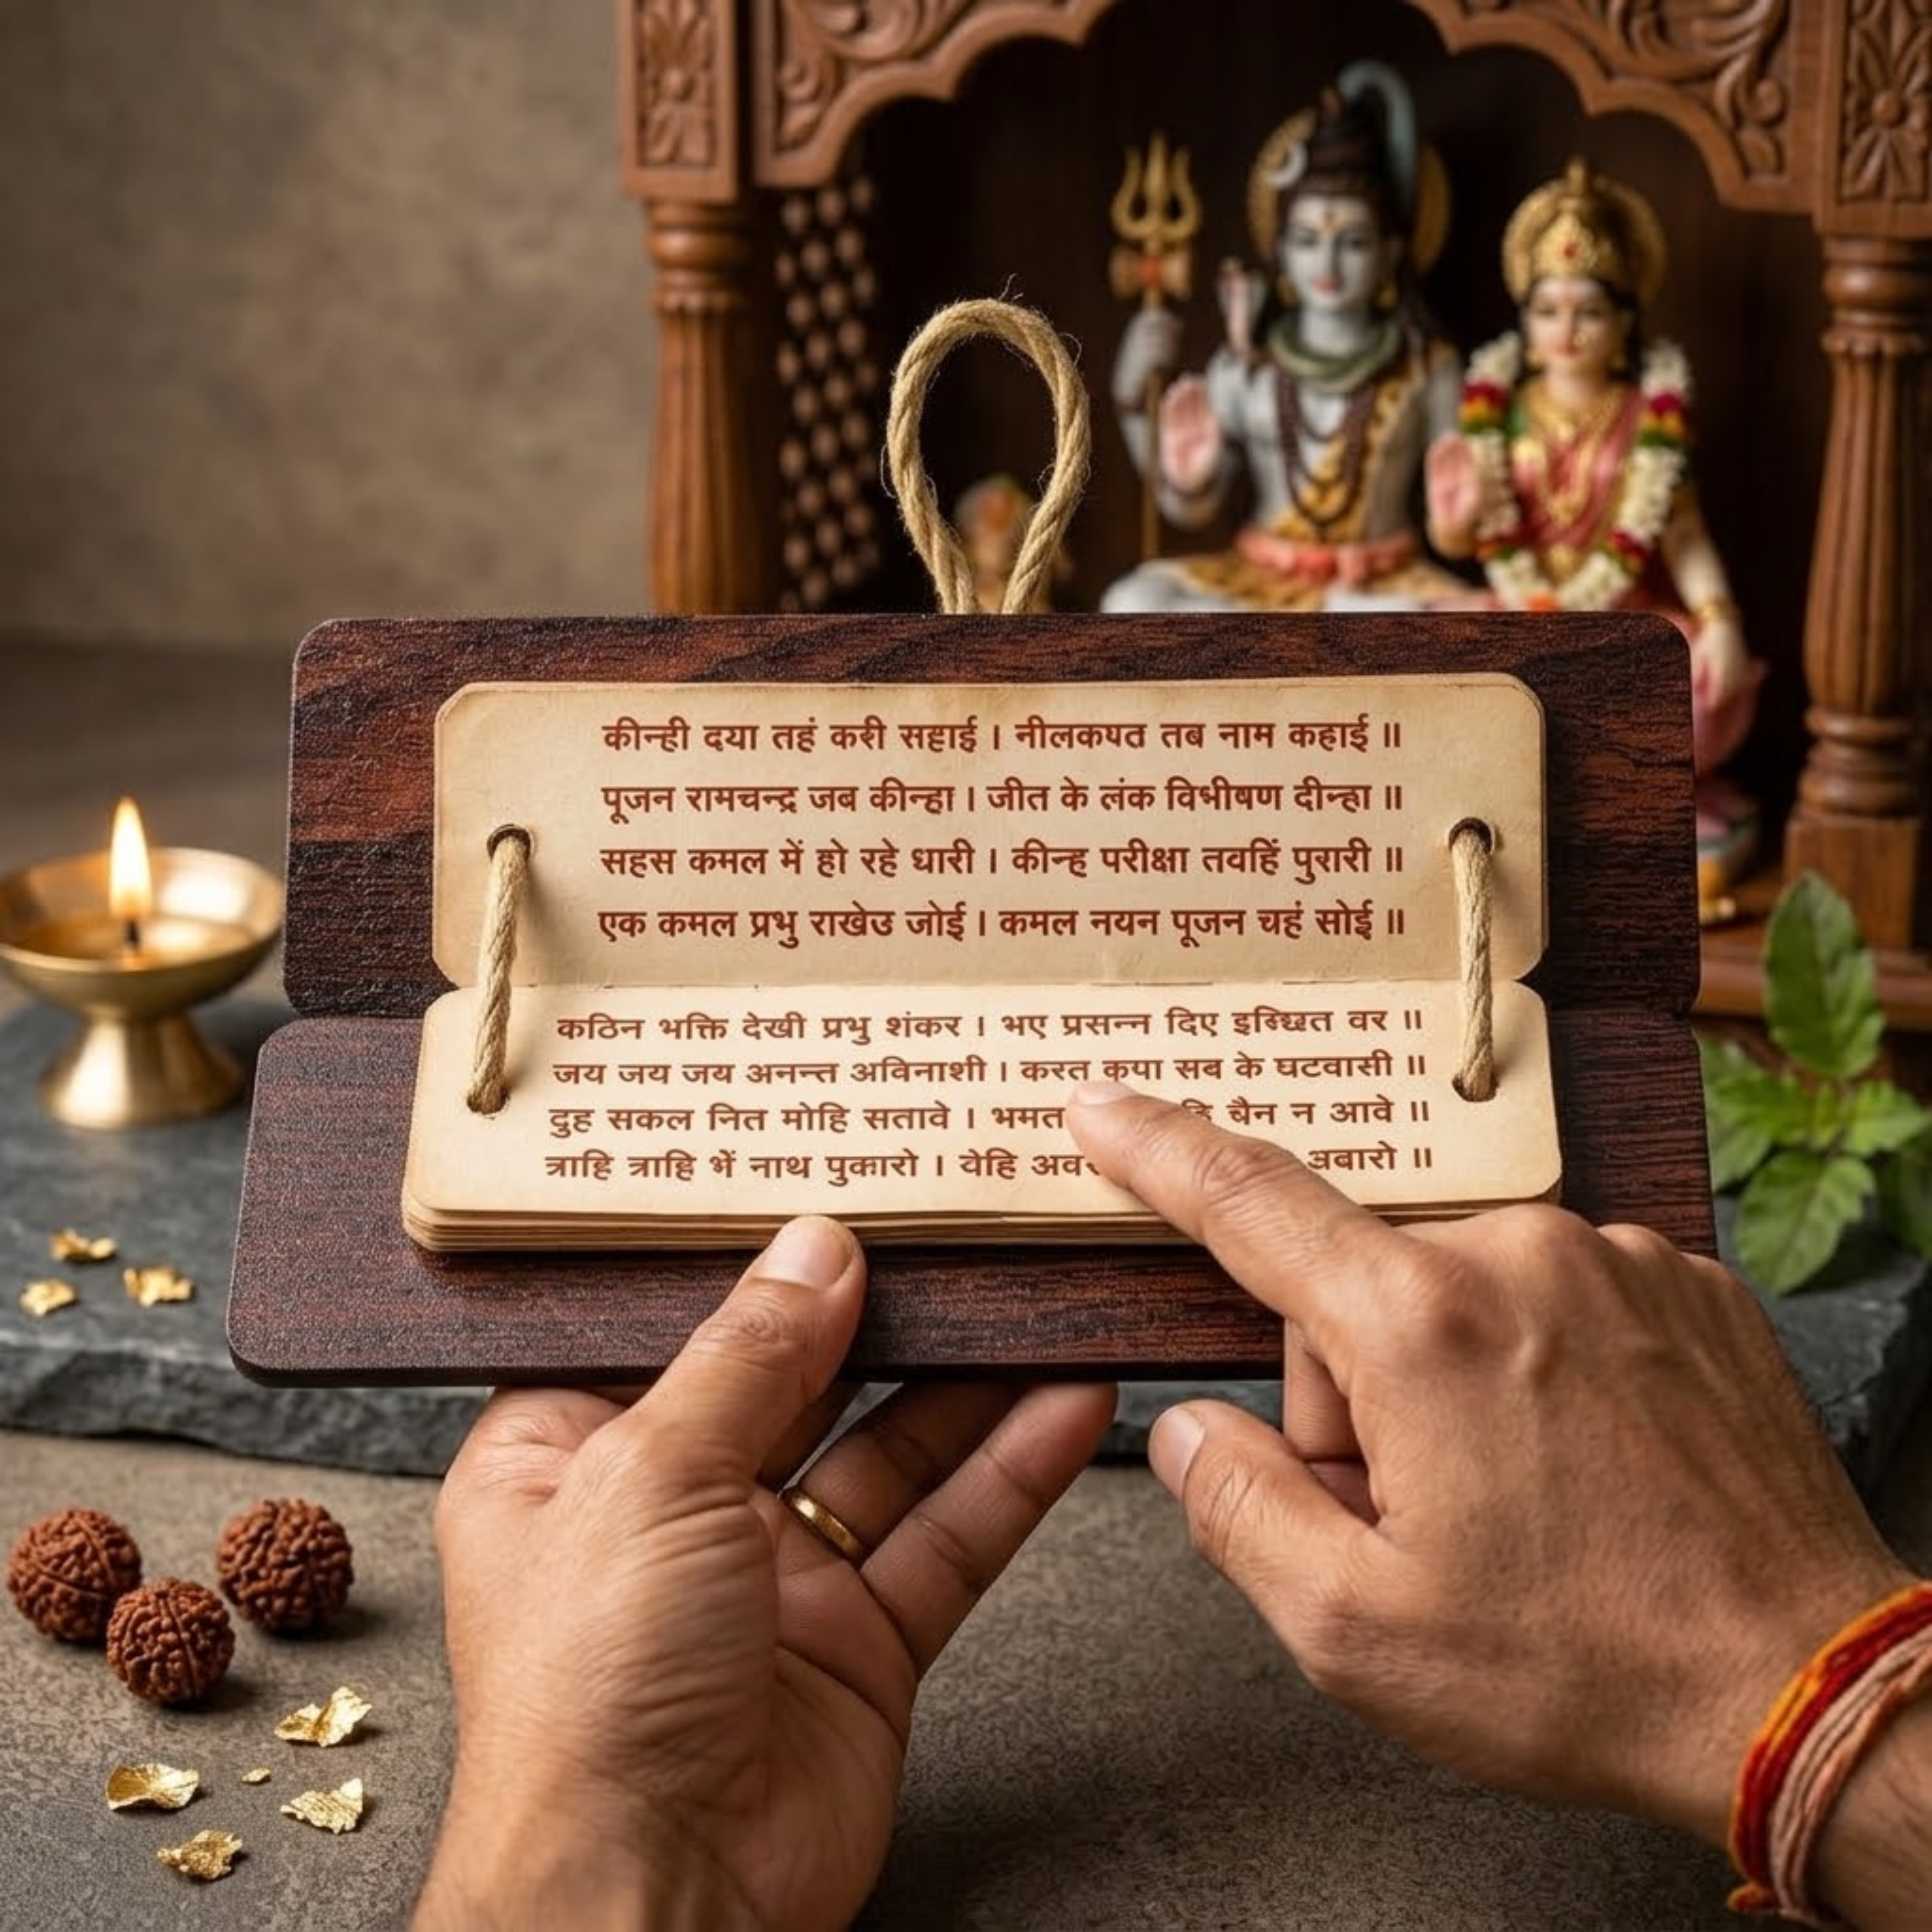 कीन्ही दया तहं करी सहाई । नीलकण्ठ तब नाम कहाई ॥
पूजन रामचन्द्र जब कीन्हा । जीत के लंक विभीषण दीन्हा ॥
सहस कमल में हो रहे धारी । कीन्ह परीक्षा तवहिं पुरारी ॥
एक कमल प्रभु राखेउ जोई । कमल नयन पूजन चहं सोई ॥
कठिन भक्ति देखी प्रभु शंकर । भए प्रसन्न दिए इच्छित वर ॥
जय जय जय अनन्त अविनाशी । करत कृपा सब के घटवासी ॥
दुह सकल नित मोहि सतावे । भमत चैन न आवे ॥
त्राहि त्राहि भें नाथ पुकारो । वेहि